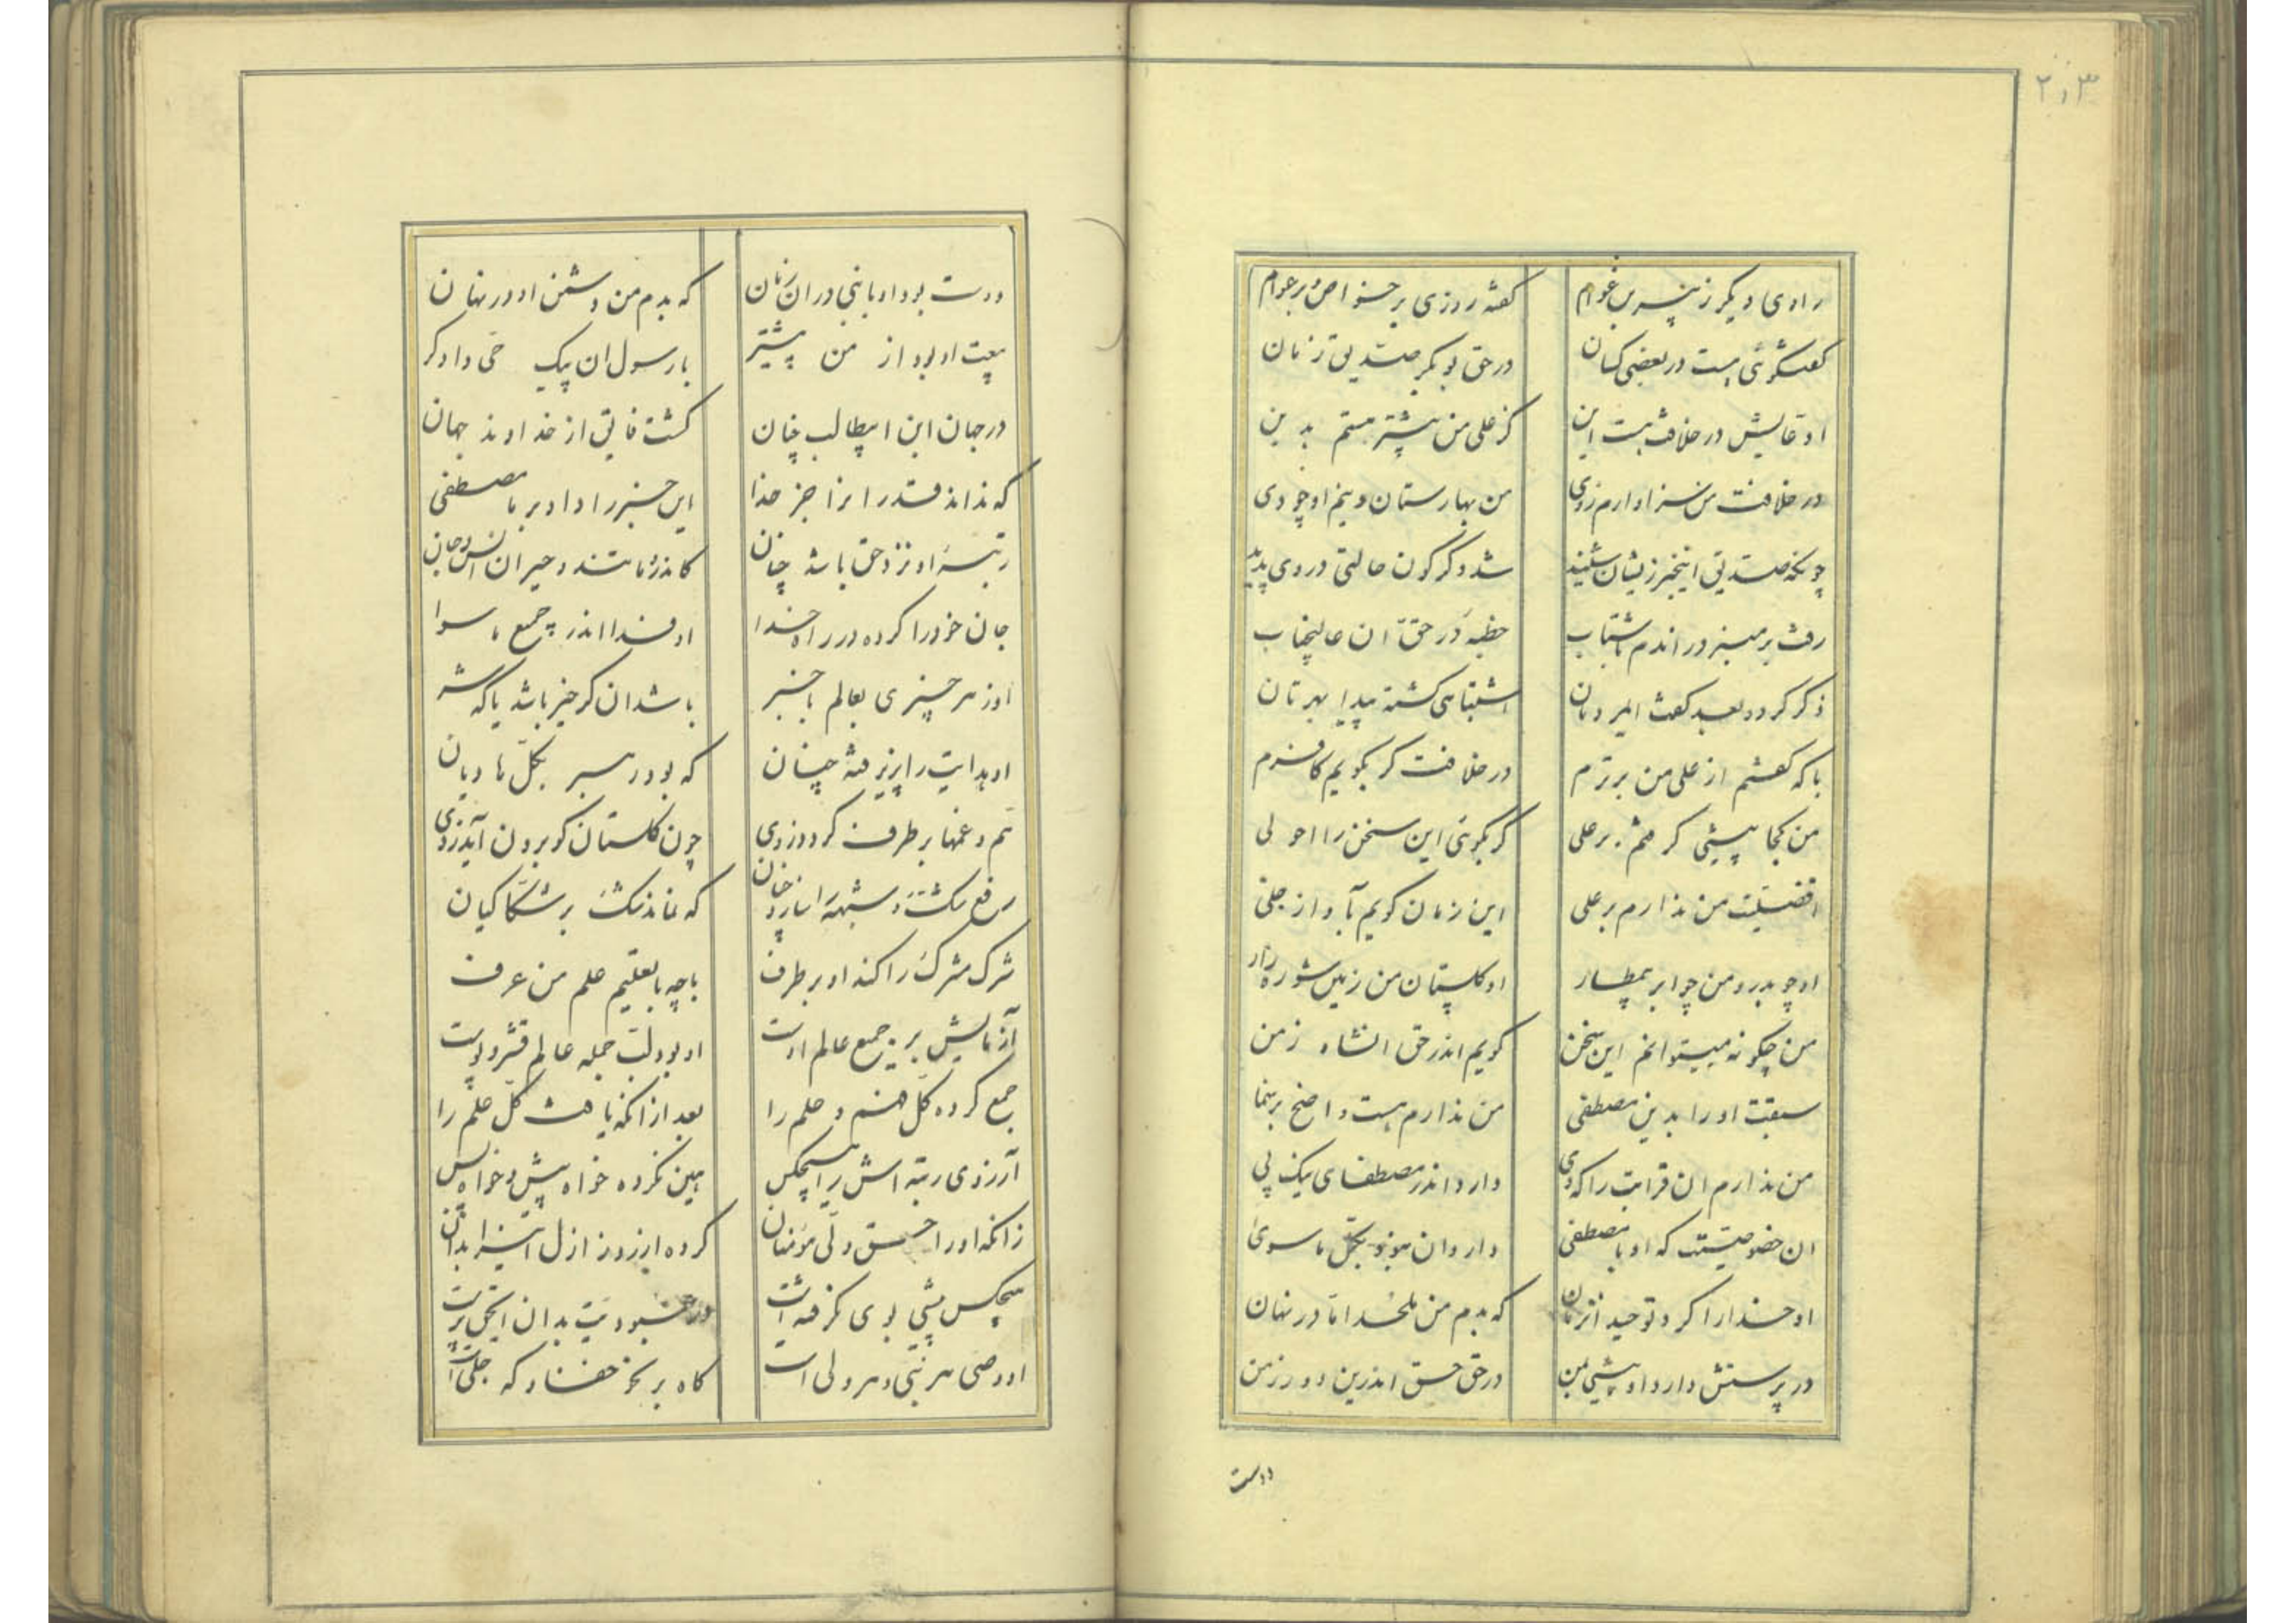 ۲۰۳
راوی دیگر ز پیر بن عوام گفته روزی بر خواص و بر عوام
گفتگوئی هست در بعضی کسان در حق بوبکر صدیق زمان
ادعایش در خلافت هست این کز علی من پیشتر هستم بدین
در خلافت من سزاوارم زوی من بهارستان وینم او چو دی
چونکه صدیق اینخبر زیشان شنید شد دگرگون حالتی در وی پدید
رفت بر منبر در اندم باشتاب خطبه در حق آن عالیجناب
ذکر کرد و بعد گفت ایمردمان اشتباهی گشته پیدا بهرتان
با که گفتم از علی من برترم در خلافت گر بگویم کافرم
من کجا پیشی گرفتم بر علی گر بگوئی این سخن را احولی
افضلیت من ندارم بر علی این زمان گویم بآواز جلی
او چو بدر و من چو ابر بیمطار او گلستان من زمین شوره زار
من چگونه میتوانم این سخن گویم اندر حق انشاه زمن
سبقت او را بدین مصطفی من ندارم هست واضح برشما
من ندارم ان قرابت را که وی دارد اندر مصطفای نیک پی
ان خصوصیت که او با مصطفی دارد ان نبود بکل ماسوی
او خدا را کرد توحید انزمان که بدم من ملحد اما در نهان
در پرستش دارد او پیشی بمن در حق حق اندرین دور زمن
دوست
دوست بود او با نبی در ان زمان که بدم من دشمن او در نهان
بیعت او بود از من پیشتر با رسول ان پیک حی دادگر
در جهان این ابیطالب چنان گشت فایق از خداوند جهان
که نداند قدر او را جز خدا این خبر را داد او بر مصطفی
رتبهٔ او نزد حق باشد چنان کاندر و ماتند و حیران انس و جان
جان خود را کرده در راه خدا او فدا اندر جمیع ماسوا
او ز هر چیزی بعالم باخبر باشد ان گر خیر باشد یا که شر
او هدایت را پذیرفته چنان که بود رهبر بکل هادیان
هم و غمها بر طرف کردد زوی چون گلستان کو برون آید زدی
رفع گشته شبهه از پارو خان که نماند شک بر شکاکیان
شرک مشرک را کند او برطرف باچه با تعلیم علم من عرف
آزمایش بر جمیع عالم اوست او بود لب جمله عالم قشر و پوست
جمع کرده کل فهم و علم را بعد از انکه یافت کل حلم را
آرزوی رتبه اش را هیچکس بین نکرده خواه پیش و خواه پس
زانکه او را حق ولی مؤمنان کرده از روز ازل اینرا بدان
هیچکس پیشی بوی نگرفته است در عبودیت بدان ایحق پرست
او وصی هر نبی و هر ولی است گاه بر نحو خفا و گه جلی است